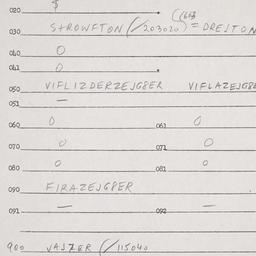 020 $
030 STROWFTON (/203020) = DRESTON
040 0
041 0
050 VIFLIZDERZEJGPER VIFLAZEJGPER
051 —
060 0 061 0
070 0 071 0
080 0 081 0
090 FIRAZEJGPER
091 — 092 —
900 VAJZER (/115040